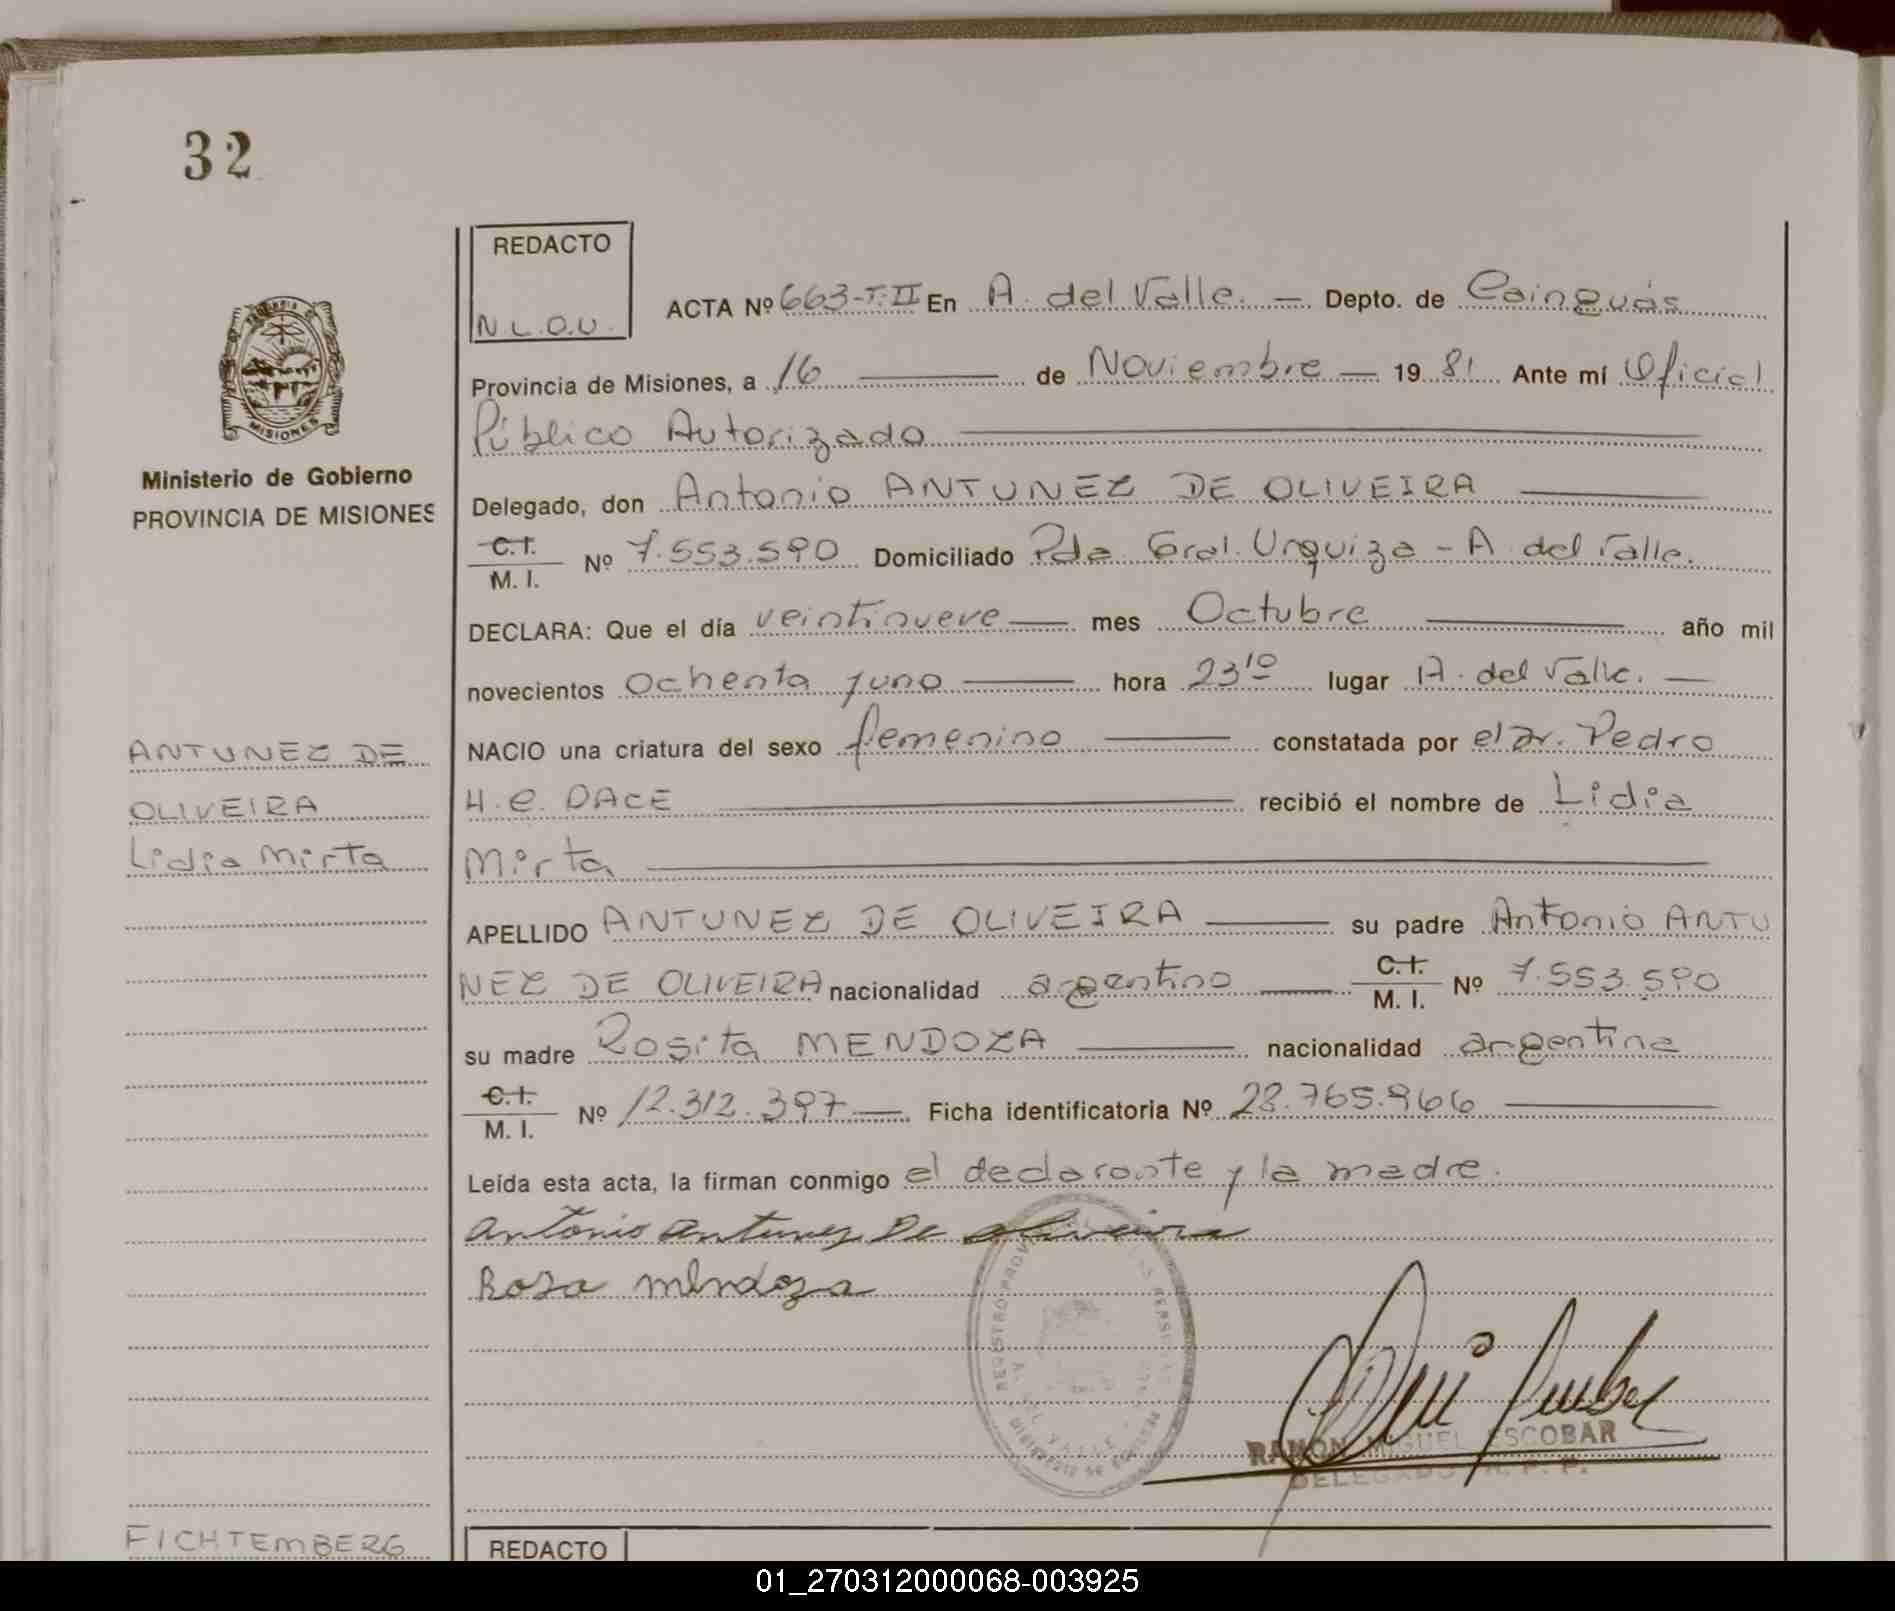 32
REDACTO
N.L.O.U.
ACTA Nº 663-T.II En A. del Valle. — Depto. de Cainguás
Provincia de Misiones, a 16 de Noviembre — 19 81 Ante mí Oficial
Público Autorizado
MISIONES
Ministerio de Gobierno
PROVINCIA DE MISIONES
Delegado, don Antonio ANTUNEZ DE OLIVEIRA
C.I. M. I. Nº 7.553.590 Domiciliado Pda Gral. Urquiza - A. del Valle.
DECLARA: Que el día veintinueve — mes Octubre año mil
novecientos Ochenta y uno hora 23 10 lugar A. del Valle. —
NACIO una criatura del sexo femenino constatada por el Dr. Pedro
H. C. DACE recibió el nombre de Lidia
Mirta
ANTUNEZ DE
OLIVEIRA
Lidia Mirta
APELLIDO ANTUNEZ DE OLIVEIRA su padre Antonio ANTU
NEZ DE OLIVEIRA nacionalidad argentino C.I. M. I. Nº 7.553.590
su madre Rosita MENDOZA nacionalidad argentina
C.I. M. I. Nº 12.312.397 Ficha identificatoria Nº 28.765.966
Leída esta acta, la firman conmigo el declarante y la madre.
Antonio Antunez De Oliveira
Rosa Mendoza
RAMON MIGUEL ESCOBAR
DELEGADO R. P. P.
FICHTEMBERG
REDACTO
01_270312000068-003925